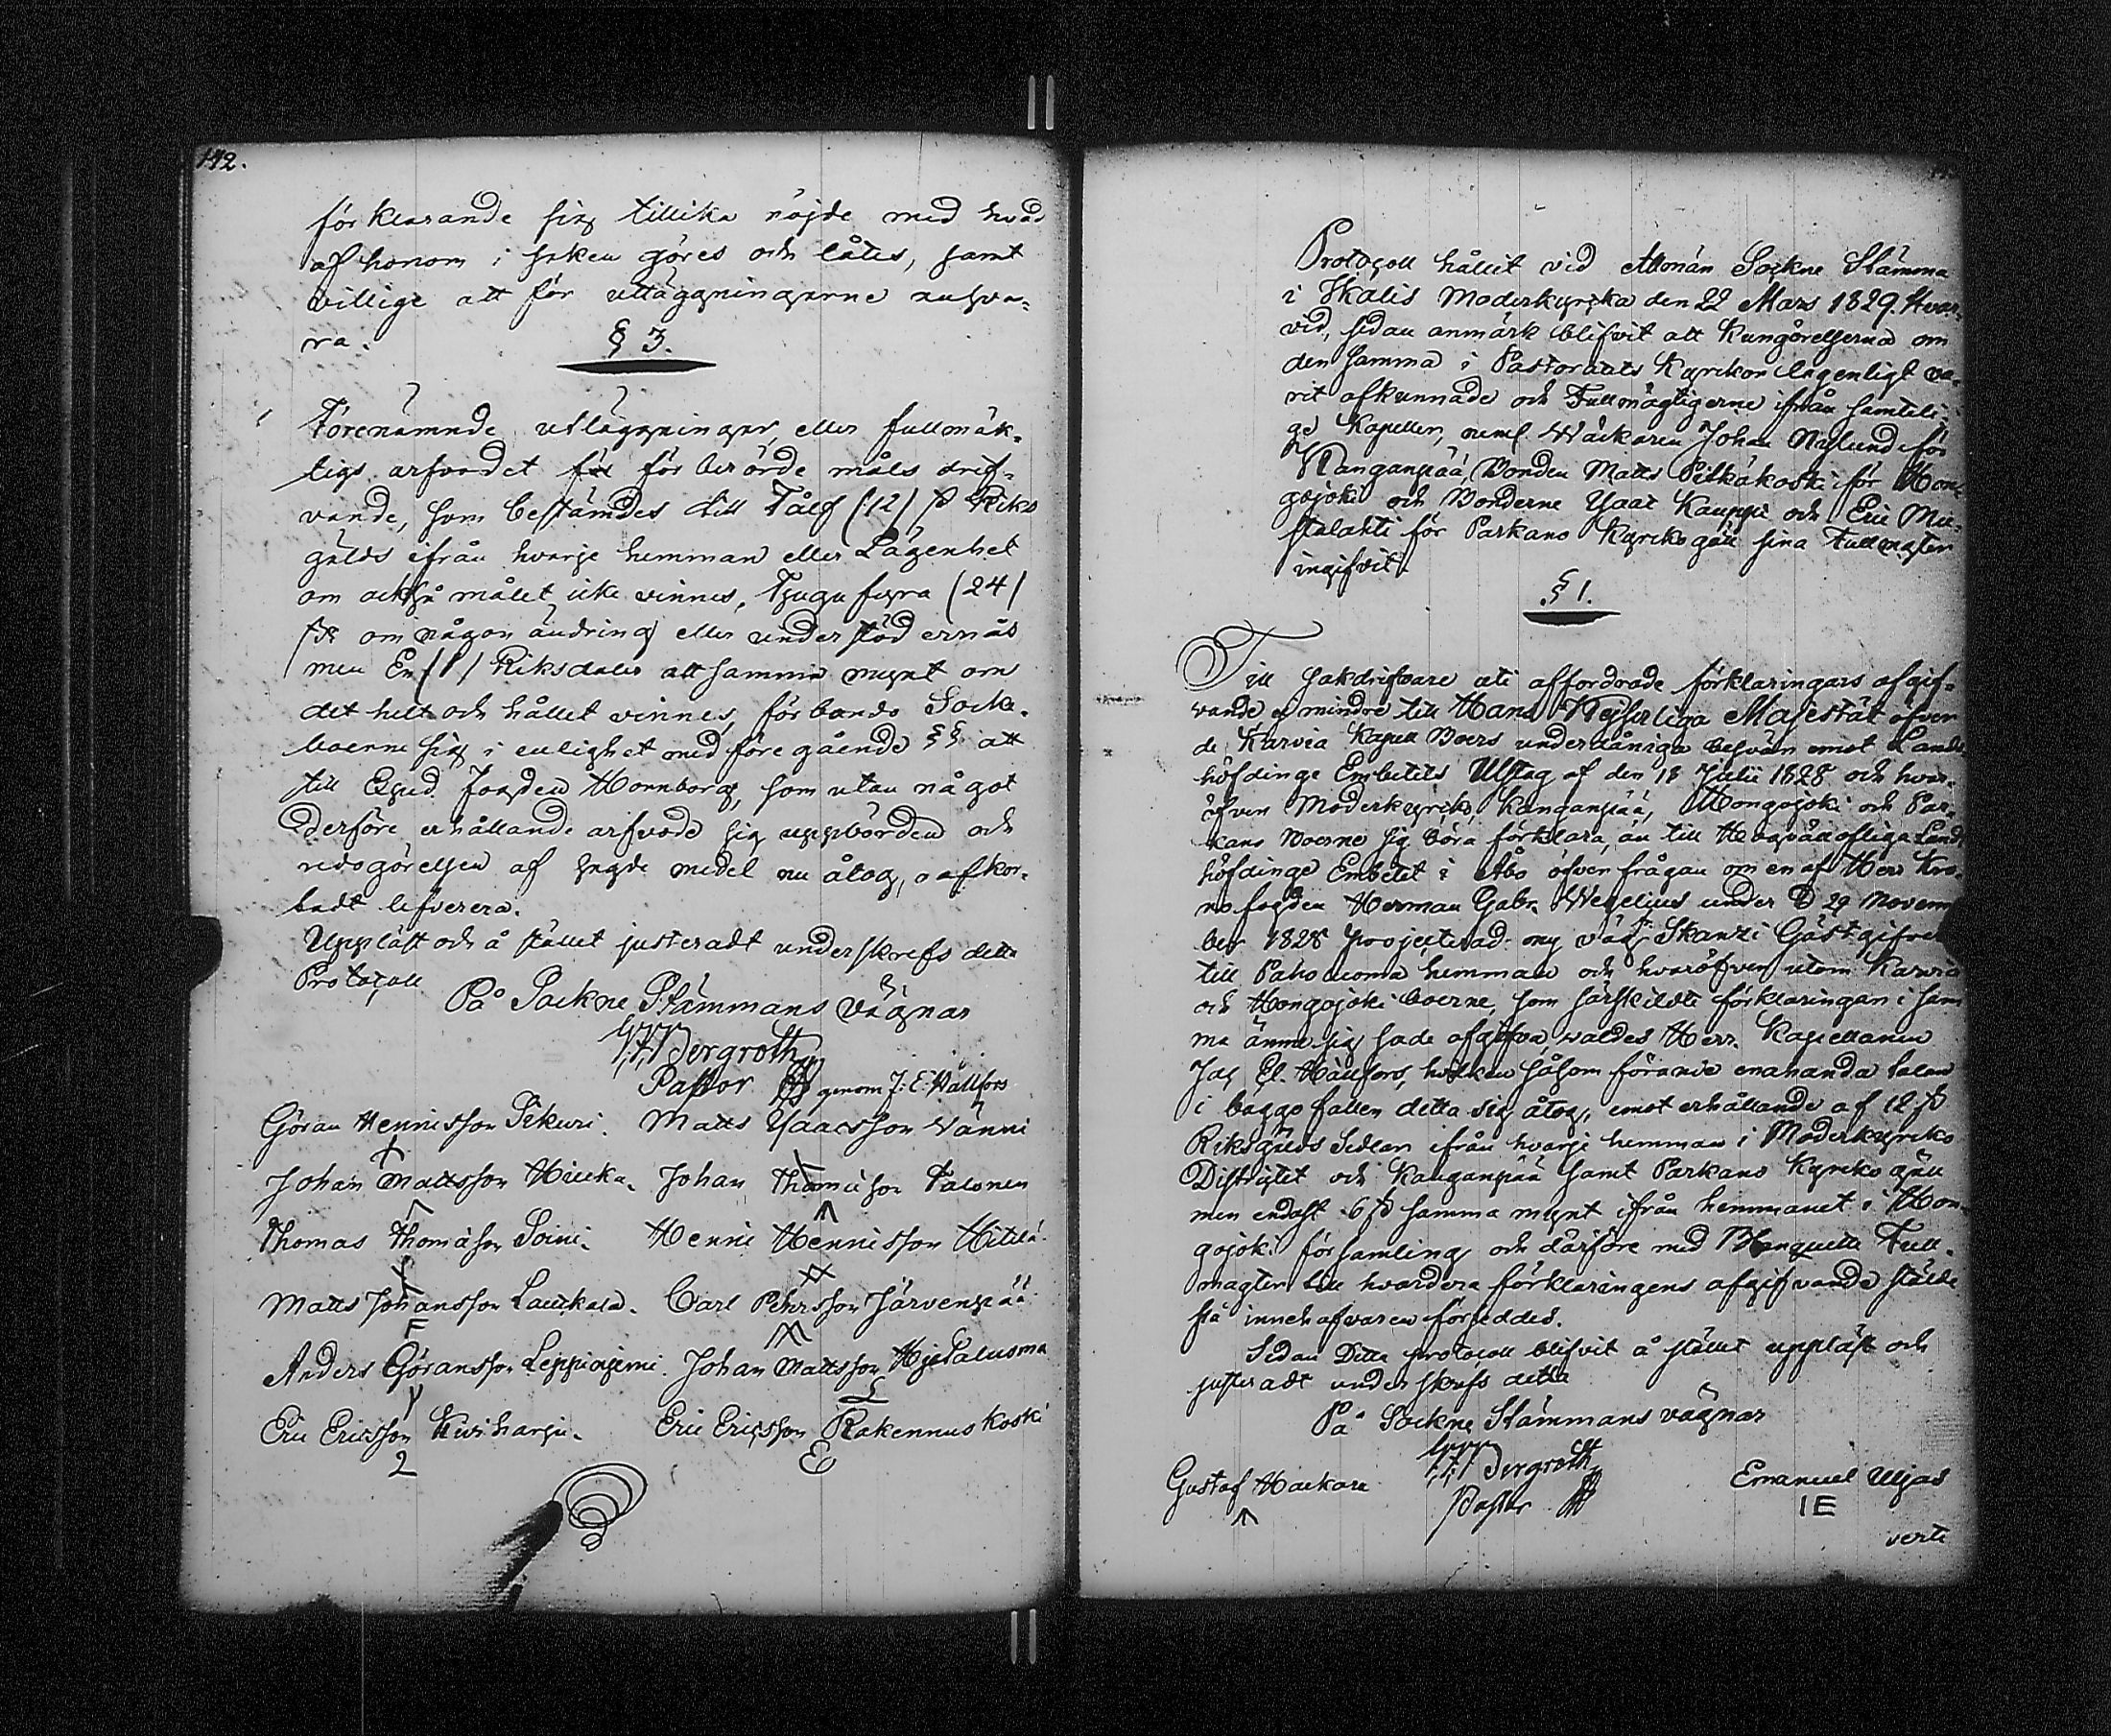 142.
förklarande sig tillika nöjde med hvad
af honom i saken göres och låtes, samt
villige att för utläggningarne ansva-
ra.
§ 3.
Förenämnde utläggningar, eller fullmäk-
tigs arfvodet för för berörde måls drif-
vande, som bestämdes till Tålf (12) s Riks
gälds ifrån hvarje hemman eller Lägenhet
om också målet icke vinnes, Tjugu fyra (24)
sk om någon ändring eller understöd ernås
men En (1) Riksdaler all samma mynt om
det helt och hållet vinnes, förbando Socke-
boerne sig i enlighet med föregående §§ att
till Fogden Hornborg, som utan något
derföre erhållande arfvode sig uppbörden och
redogörelsen af sagde medel nu åtog, oafkor-
tadt lefverera.
Uppläst och å stället justeradt underskrefs detta
Protocoll
På Sockne Stämmans vägnar
Bergroth
Pastor genom J: E: Hällfors
Göran Hennisson Sikuri. Matts Isaacsson Vänni
Johan Mattsson Hiucka. Johan Thomasson Talonen
Thomas Thomasson Soini. Henric Henricsson Hitilä.
Matts Johansson Laukala. Carl Pehrsson Järvenpää
Anders Göransson Leppiniemi. Johan Mattsson
E
Eric Ericsson Kuiharju. Eric Ericsson Rakennuskoski
2 E
Protocoll hållit vid Allmän Sockne Stämma
i Ikalis Moderkyrka den 22 Mars 1829. Hvar-
vid, sedan anmärkt blifvit att Kungörelserna om
den samma i Pastoraatets Kyrkor lagenligt va-
rit afkunnade och Fullmägtigerne ifrån samteli-
ge Kapellen, neml. Wäckaren Johan Näslund för
Kanganpää, Bonden Matts Pitkäkoski för Hon-
gojoki och Bönderne Isaac Kauppi och Eric Mie-
stalahti för Parkano Kyrkogäll sina Fullmagter
ingifvit.
§ 1.
Till sakdrifvare uti affordrade förklaringars afgif-
vande, ej mindre till Hans Kejserliga Majestät öfver
de Karvia Kapell Boers underdåniga besvär emot Lands-
höfdinge Embetets Utslag af den 18 Julii 1828 och hvar-
öfver Moderkyrko, Kanganpää, Hongojoki och Par-
kano Boerne sig böra förklara, än till Höglofliga Lands
höfdinge Embetet i Åbo öfver frågan om en af Herr Kro-
no fogden Herman Gabr. Wegelius under D 29 Novem-
ber 1828 projecterad ny väg fr. Skanzi Gästgifveri
till Paholuoma hemman och hvaröfver utom Karvia
och Hongojoki boerne, som särskildte förklaringar i sam-
ma ämne sig sade afgifva, valdes Herr Kapellanen
Jac El. Hällfors, hvilken såsom förande enahanda talan
i bägge fallen detta sig åtog, emot erhållande af 12 s
Riksgälds Sedlar ifrån hvarje hemman i Moderkyrko
Districtet och Kanganpää samt Parkano Kyrkogäll
men endast 6 s samma mynt ifrån hemmanet i Hon-
gojoki församling och därföre med Blanquette Full-
magter till hvardera förklaringens afgifvande stälde
på innehafvaren förseddes.
Sedan Detta protocoll blifvit å stället uppläst och
justeradt underskrefs detta
På Sockne Stämmans vägnar
Bergroth
Gustaf Hackara Pastor Emanuel Uljas
IE
verte